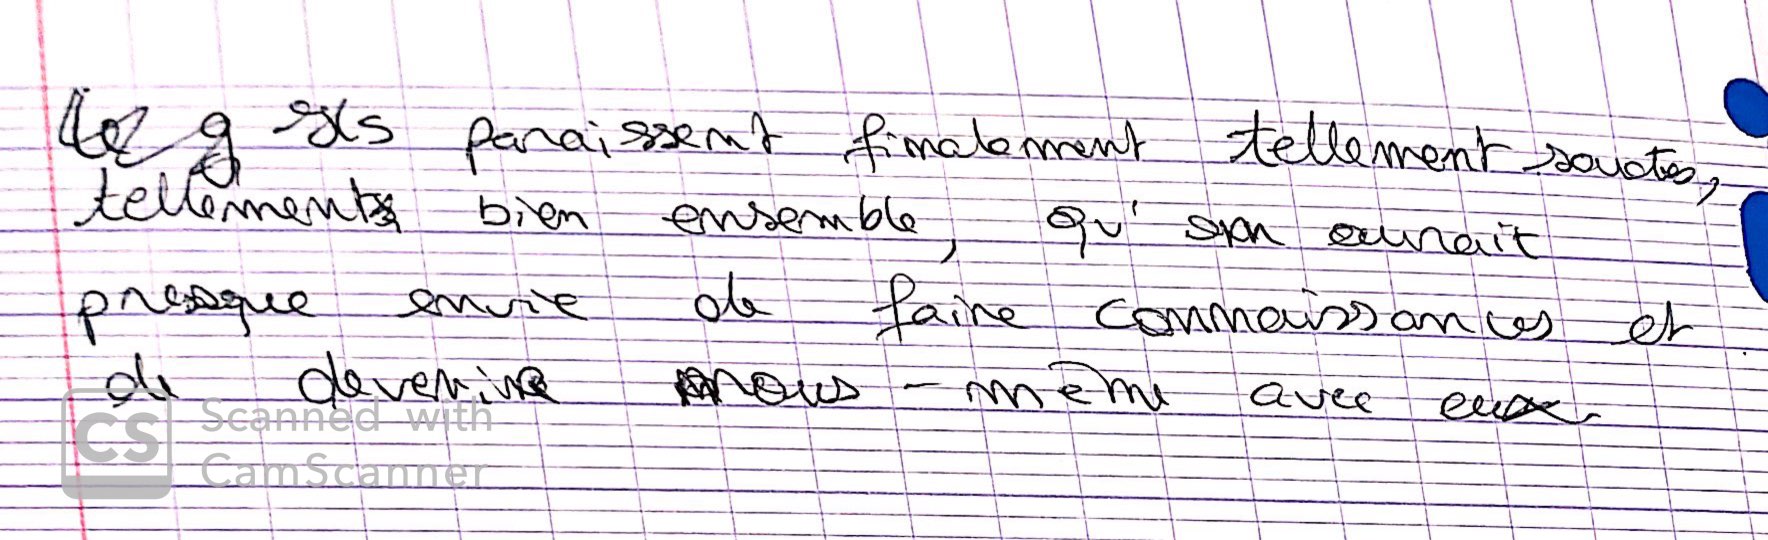 Ils paraissent finalement tellement soudés,
tellement bien ensemble, qu'on aurait
presque envie de faire connaissances et
de devenir nous-même avec eux.
Scanned with
CS CamScanner